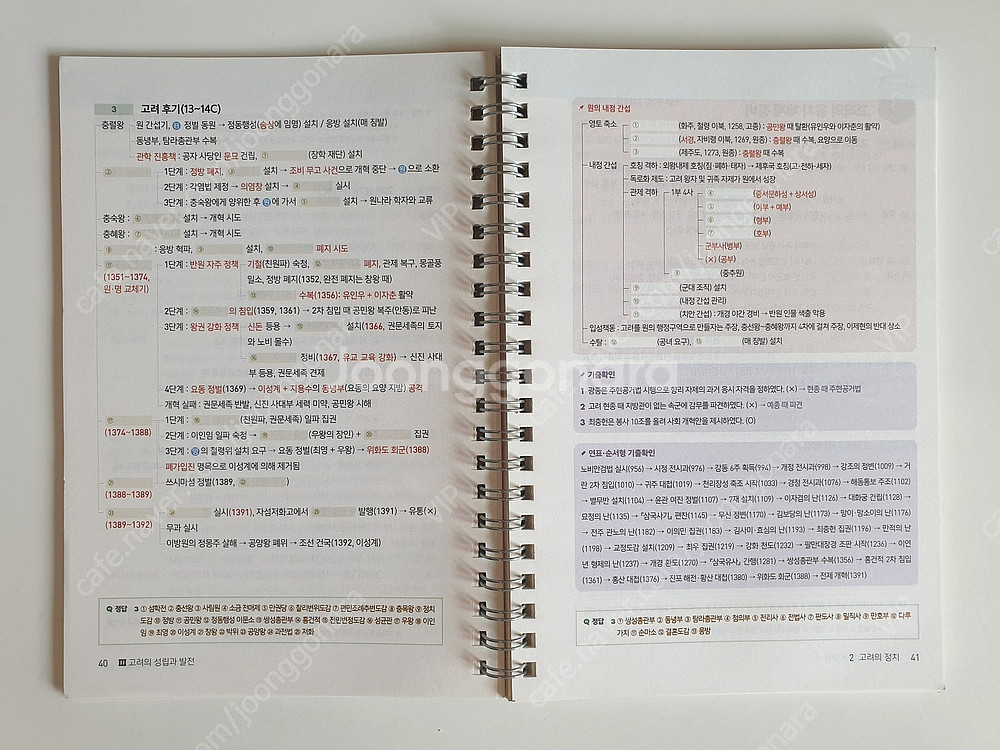 3 고려 후기(13~14C)
충렬왕 원 간섭기, 日 정벌 동원 → 정동행성(승상에 임명) 설치 / 응방 설치(매 징발)
동녕부, 탐라총관부 수복
관학 진흥책 : 공자 사당인 문묘 건립, ① (장학 재단) 설치
② 1단계 : 정방 폐지, ③ 설치 → 조비 무고 사건으로 개혁 중단 → 원으로 소환
2단계 : 각염법 제정 → 의염창 설치 → ④ 실시
3단계 : 충숙왕에게 양위한 후 원에 가서 ⑤ 설치 → 원나라 학자와 교류
충숙왕 : ⑥ 설치 → 개혁 시도
충혜왕 : ⑦ 설치 → 개혁 시도
⑧ : 응방 혁파, ⑨ 설치, ⑩ 폐지 시도
⑪ 1단계 : 반원 자주 정책 기철(친원파) 숙청, ⑫ 폐지, 관제 복구, 몽골풍
(1351~1374, 일소, 정방 폐지(1352, 완전 폐지는 창왕 때)
원·명 교체기) ⑬ 수복(1356): 유인우 + 이자춘 활약
2단계 : ⑭ 의 침입(1359, 1361) → 2차 침입 때 공민왕 복주(안동)로 피난
3단계 : 왕권 강화 정책 신돈 등용 → ⑮ 설치(1366, 권문세족의 토지
와 노비 몰수)
⑯ 정비(1367, 유교 교육 강화) → 신진 사대
부 등용, 권문세족 견제
4단계 : 요동 정벌(1369) → 이성계 + 지용수의 동녕부(요동의 요양 지방) 공격
개혁 실패 : 권문세족 반발, 신진 사대부 세력 미약, 공민왕 시해
⑰ 1단계 : ⑱ (친원파, 권문세족) 일파 집권
(1374~1388) 2단계 : 이인임 일파 숙청 → ⑲ (우왕의 장인) + ⑳ 집권
3단계 : 明의 철령위 설치 요구 → 요동 정벌(최영 + 우왕) → 위화도 회군(1388)
폐가입진 명목으로 이성계에 의해 제거됨
㉑ 쓰시마섬 정벌(1389, ㉒ )
(1388~1389)
㉓ ㉔ 실시(1391), 자섬저화고에서 ㉕ 발행(1391) → 유통(×)
(1389~1392) 무과 실시
이방원의 정몽주 살해 → 공양왕 폐위 → 조선 건국(1392, 이성계)
정답 3 ① 섬학전 ② 충선왕 ③ 사림원 ④ 소금 전매제 ⑤ 만권당 ⑥ 찰리변위도감 ⑦ 편민조례추변도감 ⑧ 충목왕 ⑨ 정치
도감 ⑩ 정방 ⑪ 공민왕 ⑫ 정동행성 이문소 ⑬ 쌍성총관부 ⑭ 홍건적 ⑮ 전민변정도감 ⑯ 성균관 ⑰ 우왕 ⑱ 이인
임 ⑲ 최영 ⑳ 이성계 ㉑ 창왕 ㉒ 박위 ㉓ 공양왕 ㉔ 과전법 ㉕ 저화
40 Ⅲ 고려의 성립과 발전
원의 내정 간섭
영토 축소 ① (화주, 철령 이북, 1258, 고종) : 공민왕 때 탈환(유인우와 이자춘의 활약)
② (서경, 자비령 이북, 1269, 원종) : 충렬왕 때 수복, 요양으로 이동
③ (제주도, 1273, 원종) : 충렬왕 때 수복
내정 간섭 호칭 격하 : 외왕내제 호칭(짐·폐하·태자) → 제후국 호칭(고·전하·세자)
독로화 제도 : 고려 왕자 및 귀족 자제가 원에서 성장
관제 격하 1부 4사 ④ (중서문하성 + 상서성)
⑤ (이부 + 예부)
⑥ (형부)
⑦ (호부)
군부사(병부)
(×) (공부)
⑧ (중추원)
⑨ (군대 조직) 설치
⑩ (내정 간섭 관리)
⑪ (치안 간섭) : 개경 야간 경비 → 반원 인물 색출 악용
입성책동 : 고려를 원의 행정구역으로 만들자는 주장, 충선왕~충혜왕까지 4차에 걸쳐 주장, 이제현의 반대 상소
수탈 : ⑫ (공녀 요구), ⑬ (매 징발) 설치
기출확인
1 광종은 주현공거법 시행으로 향리 자제의 과거 응시 자격을 정하였다. (×) → 현종 때 주현공거법
2 고려 현종 때 지방관이 없는 속군에 감무를 파견하였다. (×) → 예종 때 파견
3 최충헌은 봉사 10조를 올려 사회 개혁안을 제시하였다. (O)
연표·순서형 기출확인
노비안검법 실시(956) → 시정 전시과(976) → 강동 6주 획득(994) → 개정 전시과(998) → 강조의 정변(1009) → 거
란 2차 침입(1010) → 귀주 대첩(1019) → 천리장성 축조 시작(1033) → 경정 전시과(1076) → 해동통보 주조(1102)
→ 별무반 설치(1104) → 윤관 여진 정벌(1107) → 7재 설치(1109) → 이자겸의 난(1126) → 대화궁 건립(1128) →
묘청의 난(1135) → 『삼국사기』 편찬(1145) → 무신 정변(1170) → 김보당의 난(1173) → 망이·망소이의 난(1176)
→ 전주 관노의 난(1182) → 이의민 집권(1183) → 김사미·효심의 난(1193) → 최충헌 집권(1196) → 만적의 난
(1198) → 교정도감 설치(1209) → 최우 집권(1219) → 강화 천도(1232) → 팔만대장경 조판 시작(1236) → 이연
년 형제의 난(1237) → 개경 환도(1270) → 『삼국유사』 간행(1281) → 쌍성총관부 수복(1356) → 홍건적 2차 침입
(1361) → 홍산 대첩(1376) → 진포 해전·황산 대첩(1380) → 위화도 회군(1388) → 전제 개혁(1391)
정답 3 ① 쌍성총관부 ② 동녕부 ③ 탐라총관부 ④ 첨의부 ⑤ 전리사 ⑥ 전법사 ⑦ 판도사 ⑧ 밀직사 ⑨ 만호부 ⑩ 다루
가치 ⑪ 순마소 ⑫ 결혼도감 ⑬ 응방
2 고려의 정치 41
Joonggonara
cafe.naver.com/joonggonara
VIP